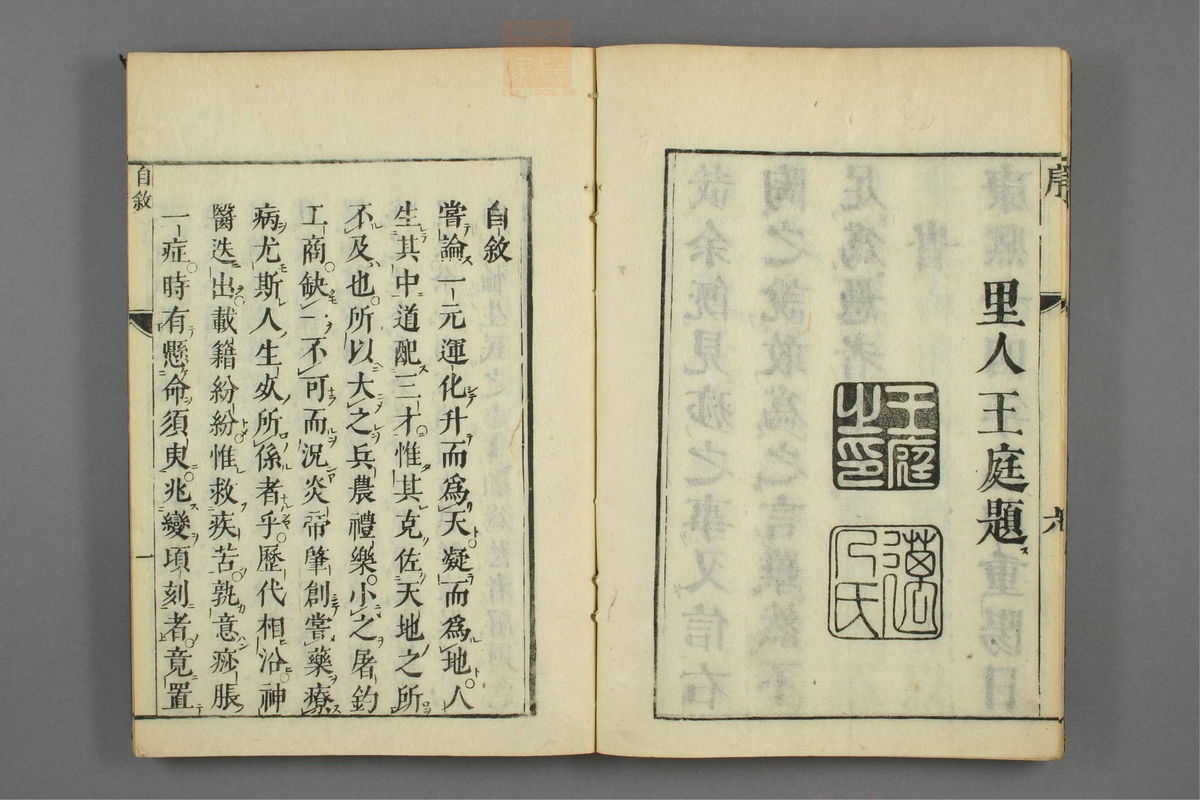 序
里人王庭題
六
王庭之印
自敘
嘗論一元運化升而爲天凝而爲地人
生其中道配三才惟其克佐天地之所
不及也所以大之兵農禮樂小之屠釣
工商缺一不可而況炎帝肇創嘗藥療
病尤斯人生死所係者乎歷代相沿神
醫迭出載籍紛紛惟救疾苦孰意痧脹
一症時有懸命須臾兆變頃刻者竟置
自敘
一